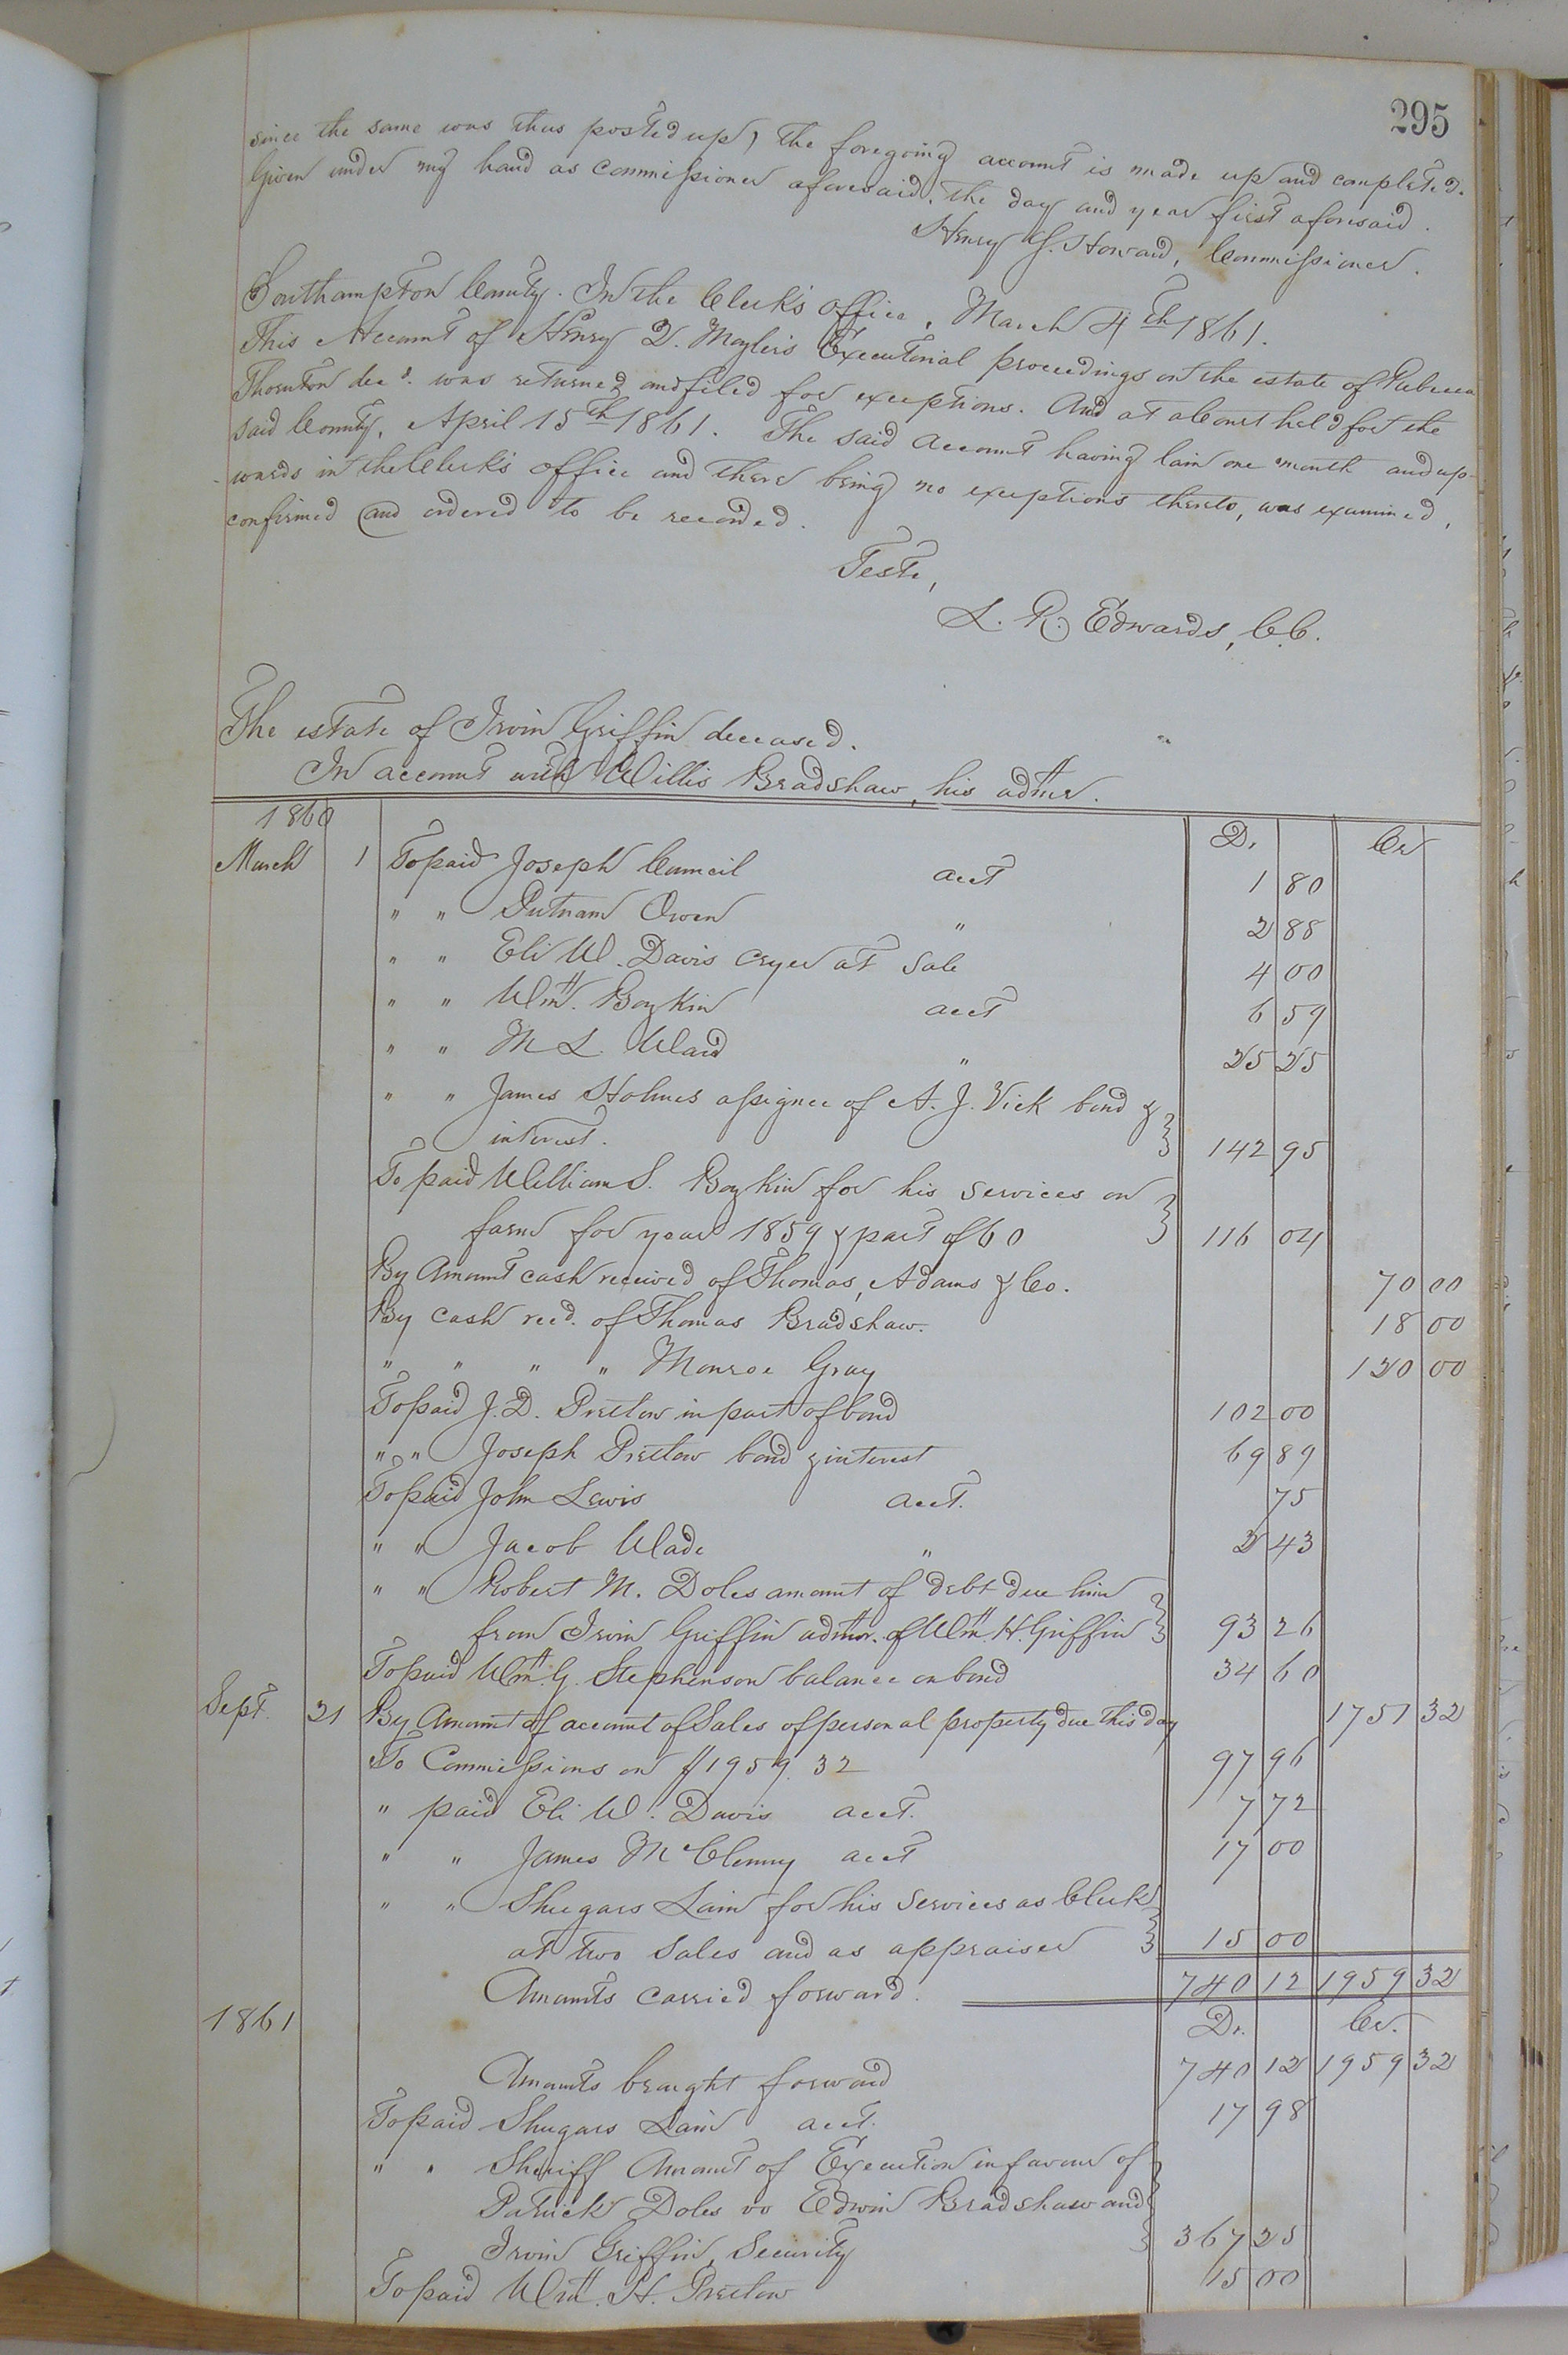 295
since the same was thus posted up, the foregoing account is made up and completed.
Given under my hand as commissioner aforesaid, the day and year first aforesaid.
Henry J. Howard, Commissioner.
Southampton County. In the Clerk's office, March 4th 1861.
This Account of Henry D. Magler's Executorial proceedings on the estate of Rebecca
Thornton decd. was returned and filed for exceptions. And at a Court held for the
said County, April 15th 1861. The said Account having lain one month and up-
-wards in the Clerk's office and there being no exceptions thereto, was examined,
confirmed and ordered to be recorded.
Teste,
L. R. Edwards, C.C.
The estate of Irvin Griffin deceased.
In account with Willis Bradshaw, his admr.
1860 Dr. Cr
March 1 To paid Joseph Council acct 1 80
" " Putnam Owen " 2 88
" " Eli W. Davis cryer at sale 4 00
" " Wm. Boykin acct 6 59
" " M L. Ward " 25 25
" " James Holmes assignee of A. J. Vick bond &
interest. 142 95
To paid William S. Boykin for his services on
farm for year 1859 & part of 60 116 04
By Amount cash received of Thomas, Adams & Co. 70 00
By cash recd. of Thomas Bradshaw. 18 00
" " " " Monroe Gray 120 00
To paid J. D. Pretlow in part of bond 102 00
" " Joseph Pretlow bond & interest 69 89
To paid John Lewis acct. 75
" " Jacob Wade " 2 43
" " Robert M. Doles amount of debt due him
from Irvin Griffin admor. of Wm. H. Griffin 93 26
To paid Wm. G. Stephenson balance on bond 34 60
Sept. 21 By Amount of account of Sales of personal property due this day 1751 32
To Commissions on $1959.32 97 96
" paid Eli W. Davis acct. 7 72
" " James McClenny acct 17 00
" " Shugars Lain for his services as Clerk
at two sales and as appraiser 15 00
Amounts carried forward. 740 12 1959 32
1861 Dr. Cr.
Amounts brought forward 740 12 1959 32
To paid Shugars Lain acct. 17 98
" " Sheriff Amount of Execution in favour of
Patrick Doles vs Edwin Bradshaw and
Irvin Griffin, Security 367 25
To paid Wm. H. Pretlow 15 00